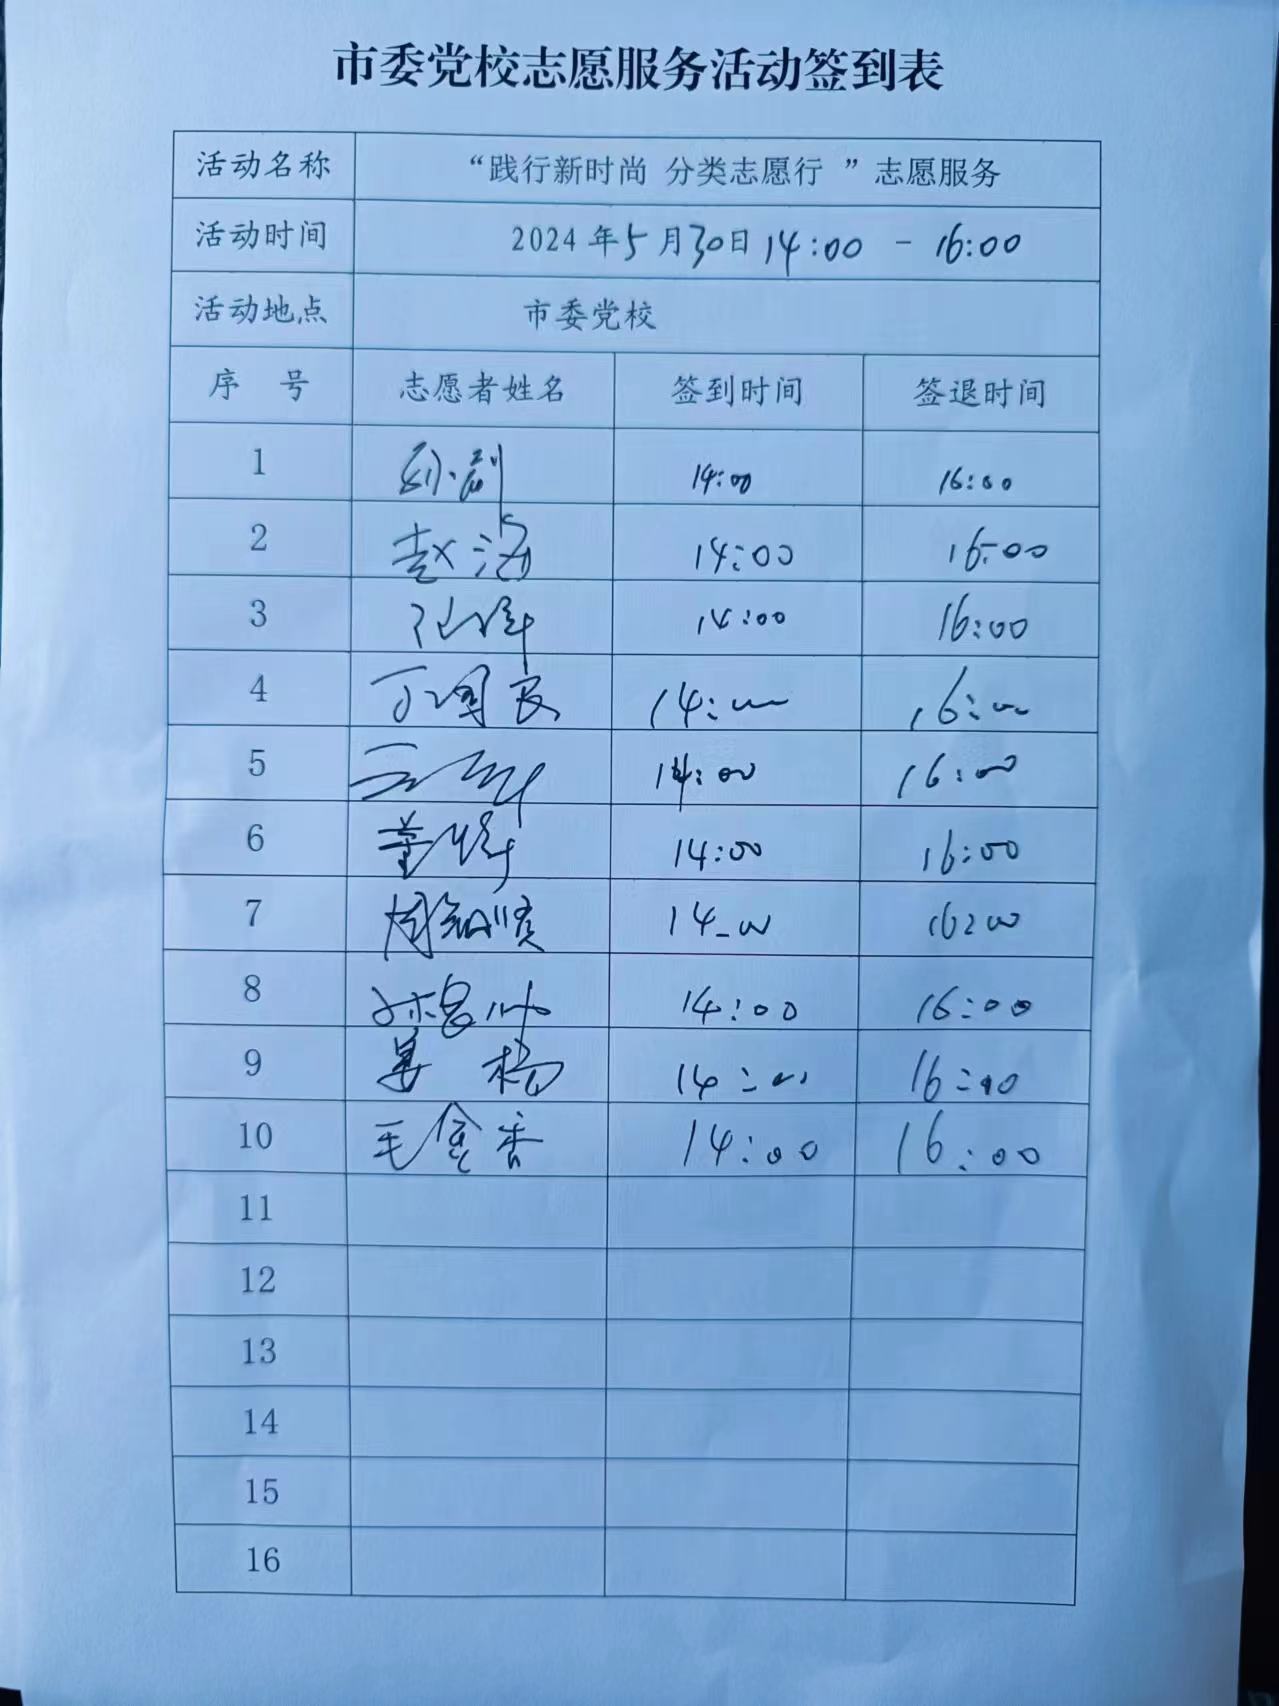 市委党校志愿服务活动签到表
活动名称 “践行新时尚 分类志愿行 ”志愿服务
活动时间 2024年5月30日14:00 - 16:00
活动地点 市委党校
序 号 志愿者姓名 签到时间 签退时间
1 14:00 16:00
2 赵 14:00 16:00
3 14:00 16:00
4 丁国良 14:00 16:00
5 14:00 16:00
6 董 14:00 16:00
7 周 14:00 16:00
8 14:00 16:00
9 姜 杨 14:00 16:00
10 毛金香 14:00 16:00
11
12
13
14
15
16